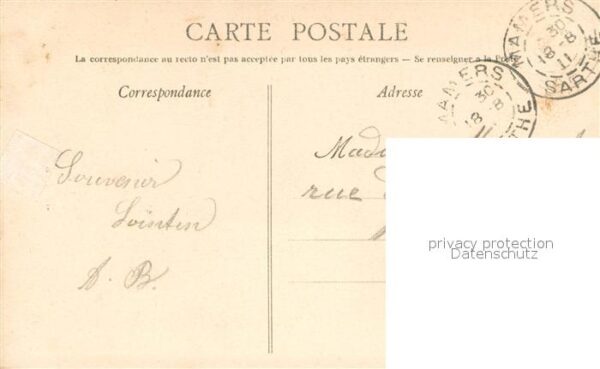 CARTE POSTALE
La correspondance au recto n'est pas acceptée par tous les pays étrangers — Se renseigner a la Poste
Correspondance
Adresse
MAMERS
18 30
8
11
SARTHE
MAMERS
18 30
8
11
THE
Souvenir
Lointin
A. B.
Mada
rue
privacy protection
Datenschutz